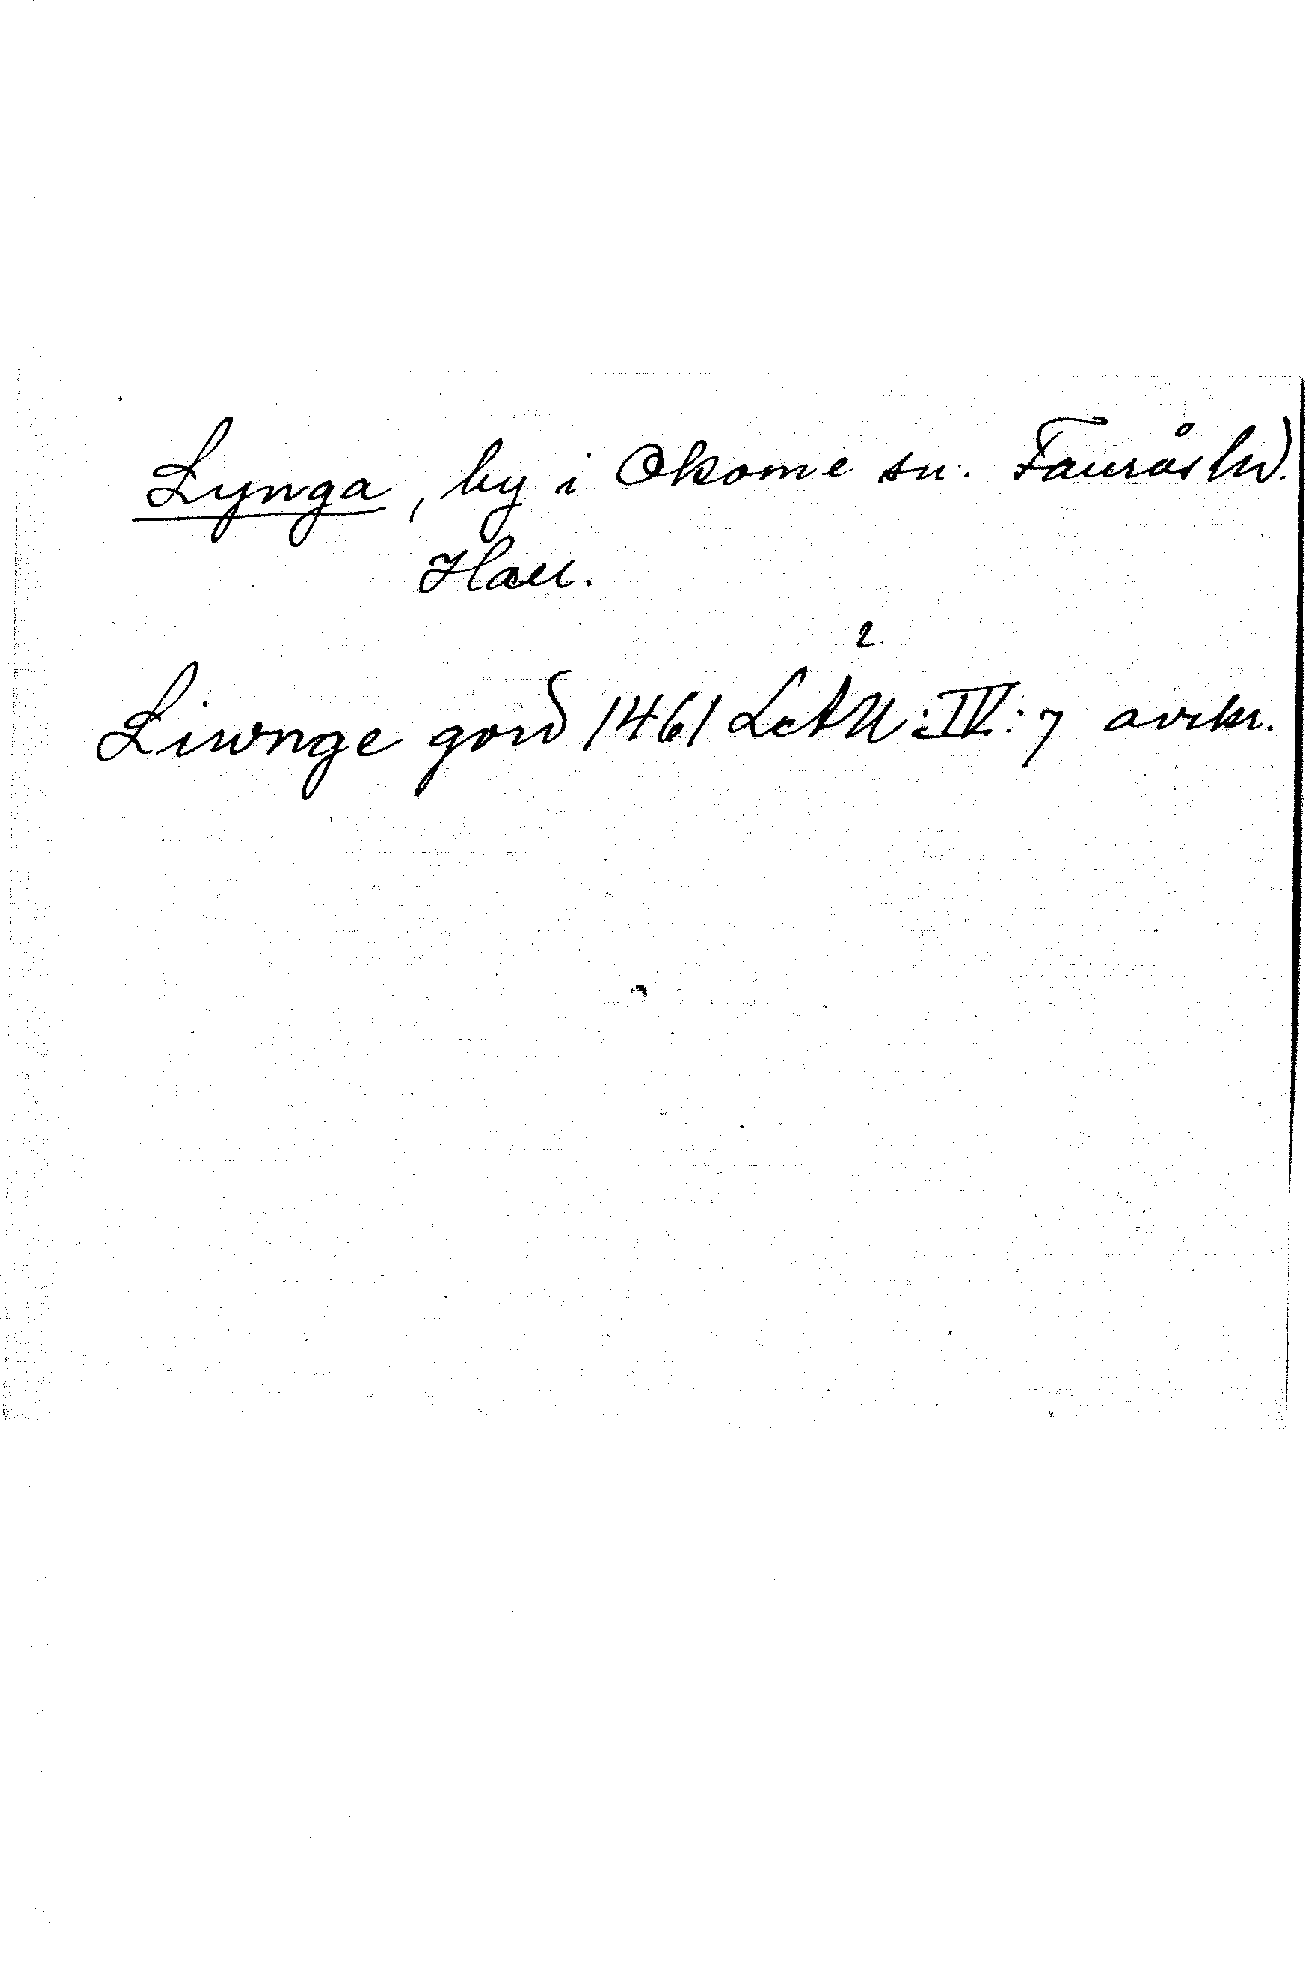 Lynga, by i Okome sn. Fauråshd.
Hall.
Liwnge gord 1461 LAU²:IV:7 avskr.